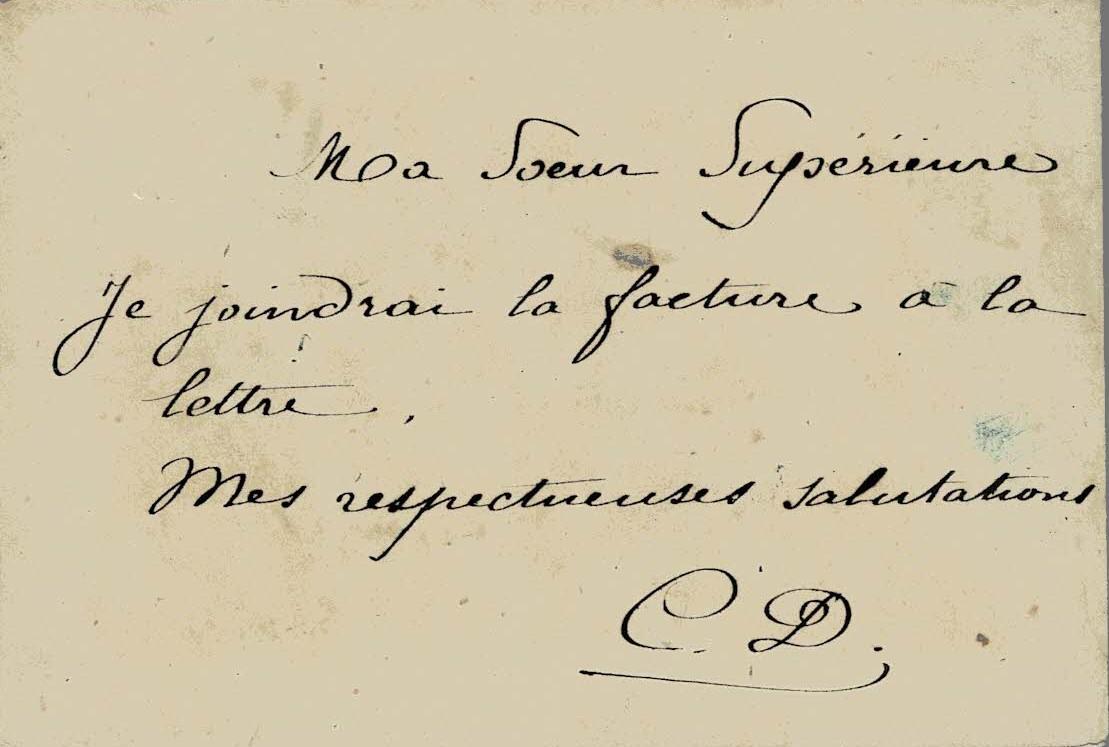 Ma Soeur Supérieure
Je joindrai la facture à la
lettre.
Mes respectueuses salutations
C. D.